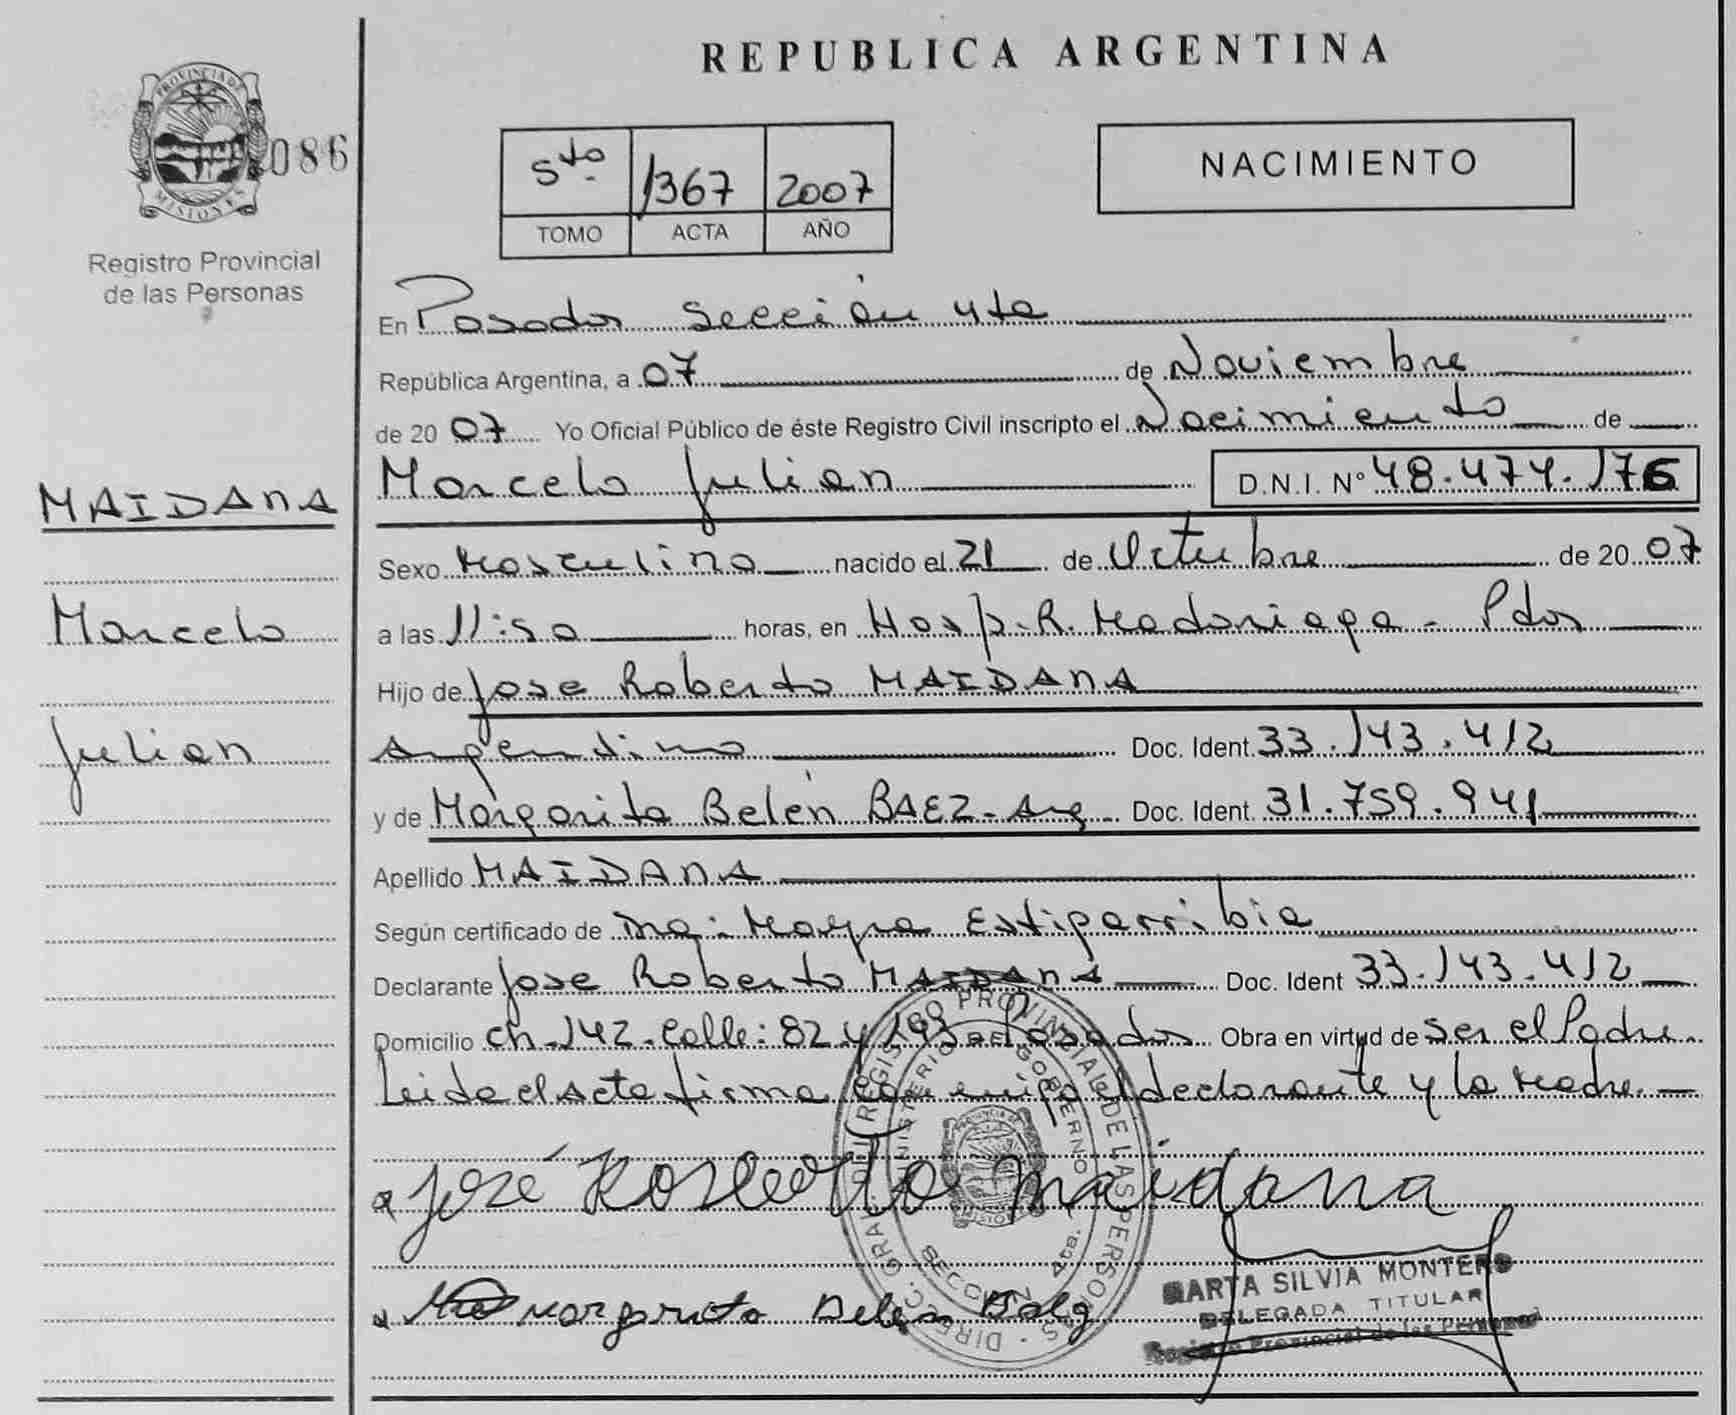 REPUBLICA ARGENTINA
PROVINCIA DE
MISIONES
086
Registro Provincial
de las Personas
5to. 1367 2007
TOMO ACTA AÑO
NACIMIENTO
En Posadas Sección 4ta
República Argentina, a 07 de Noviembre
de 20 07 Yo Oficial Público de éste Registro Civil inscripto el Nacimiento de
Marcelo Julian D.N.I. Nº 48.474.176
MAIDANA
Marcelo
Julian
Sexo Masculino nacido el 21 de Octubre de 20 07
a las 11:50 horas, en Hosp. R. Madariaga - Pdas
Hijo de Jose Roberto MAIDANA
Argentino Doc. Ident. 33.143.412
y de Margarita Belén BAEZ - Arg Doc. Ident. 31.759.941
Apellido MAIDANA
Según certificado de Estigarribia
Declarante Jose Roberto MAIDANA Doc. Ident 33.143.412
Domicilio Ch. 142 - Calle: 82 y 193 Posadas Obra en virtud de Ser el Padre
Leida el Acta firma conmigo el declarante y la Madre.
José Roberto Maidana
Margarita Belen
DIREC. GRAL. DEL REGISTRO PROVINCIAL DE LAS PERSONAS
MINISTERIO DE GOBIERNO
SECCION 4ta.
MARTA SILVIA MONTERO
DELEGADA TITULAR
Registro Provincial de las Personas